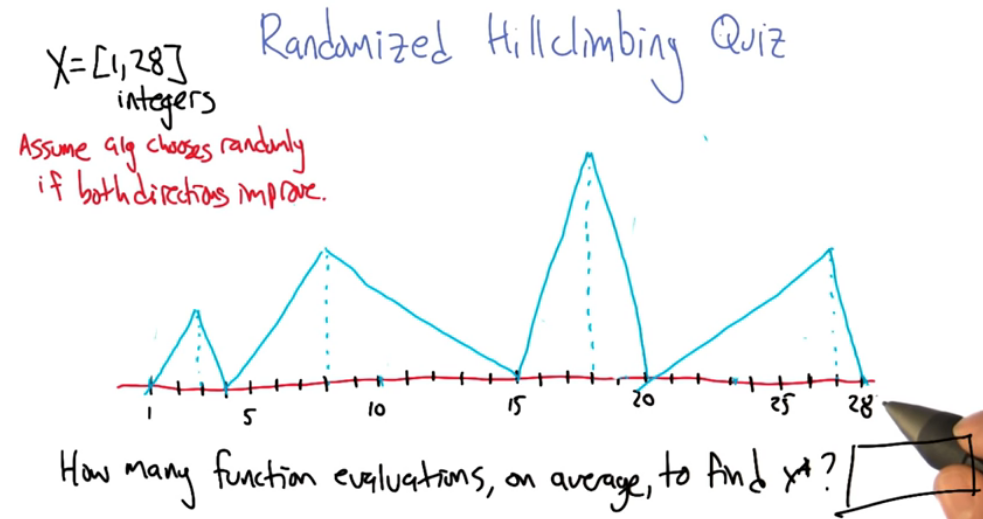 Randomized Hillclimbing Quiz
X=[1,28]
integers
Assume alg chooses randomly
if both directions improve.
1 5 10 15 20 25 28
How many function evaluations, on average, to find x*?